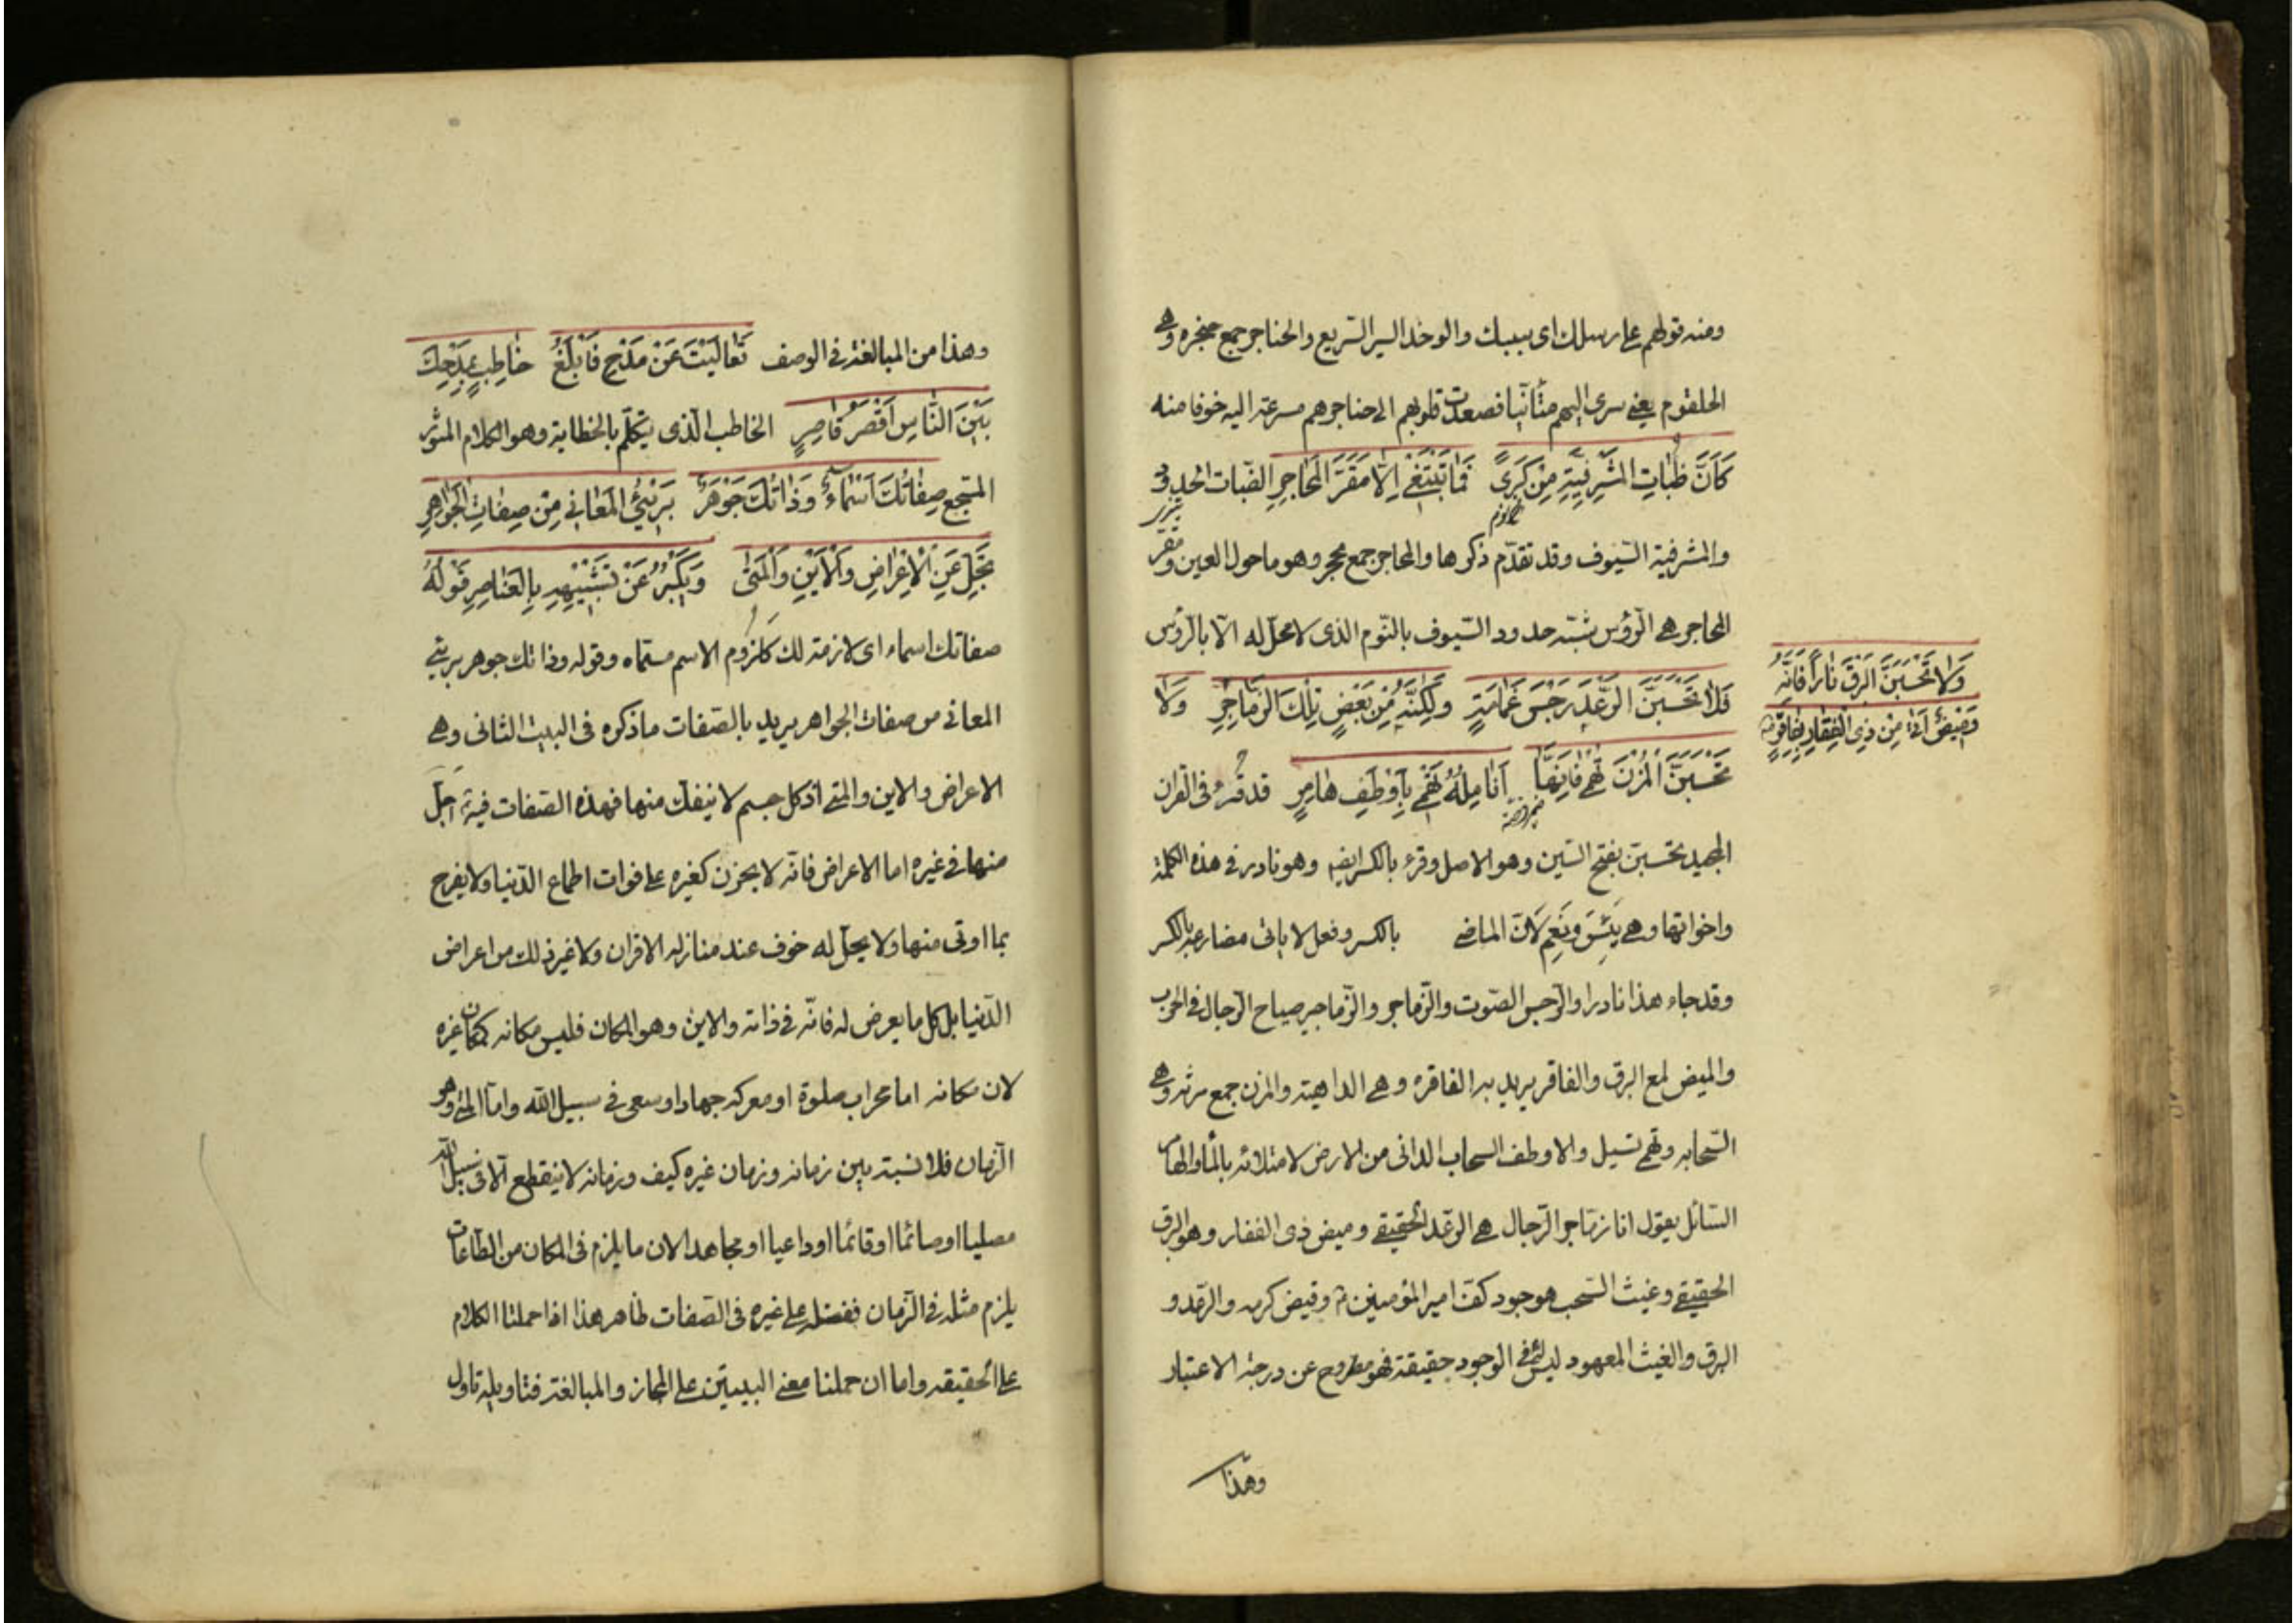 ومنه قولهم على رسلك اى سببك والوخد السير السريع والحناجر جمع حنجره وهى
الحلقوم يعنى سرى اليهم متأنيا فصعدت قلوبهم الى حناجرهم مسرعة اليه خوفا منه
كَأَنَّ ظُبَاتِ المَشْرِفِيَّةِ مِنْ كَرىً فَمَا تَبْتَغِى إِلَّا مَقَرَّ المَحَاجِرِ الظبات الحدود
والمشرفية السيوف وقد تقدّم ذكرها والمحاجر جمع محجر وهو ما حول العين ومقرّ
المحاجر هى الرؤس شبّه حدود السيوف بالنّوم الذى لا محلّ له الّا بالرؤس
فَلَا تَحْسَبَنَّ الرَّعْدَ رَجْسَ غَمَامَةٍ وَلَكِنَّهُ مِنْ بَعْضِ تِلْكَ الزَّمَاجِرِ وَلَا
وَلَا تَحْسَبَنَّ البَرْقَ نَارًا فَإِنَّهُ
وَمِيضٌ أَتَى مِنْ ذِى الفِقَارِ بِفَاقِرِ
تَحْسَبَنَّ المُزْنَ تَهْمِى فَإِنَّهَا أَنَامِلُهُ تَهْمِى بِأَوْطَفِ هَامِرٍ قد قرء فى القران
المجيد تحسبنّ بفتح السّين وهو الاصل وقرء بالكسر ايضا وهو نادر فى هذه الكلمة
واخواتها وهى يَئِسَ ونَعِمَ لانّ الماضى بالكسر وفعل لا ياتى مضارعه بالكسر
وقد جاء هذا نادرا والرّجس الصّوت والزّماجر والزّماجير صياح الرّجال فى الحرب
والميض لمع البرق والفاقر يريد به الفاقره وهى الداهية والمزن جمع مزنه وهى
السّحابه وتهمى تسيل والاوطف السحاب الدانى من الارض لامتلائه بالماء والهامر
السّائل يقول انّ زماجر الرّجال هى الرّعد الحقيقى وميض ذى الفقار وهو البرق
الحقيقى وغيث السّحب هو جود كفّ امير المؤمنين وفيض كرمه والرّعد و
البرق والغيث المعهود ليس لهم فى الوجود حقيقة فهو مطروح عن درجة الاعتبار
وهذا
وهذا من المبالغة فى الوصف تَعَالَيْتَ عَنْ مَدْحٍ فَأَبْلَغُ خَاطِبٍ بِمَدْحِكَ
بَيْنَ النَّاسِ أَقْصَرُ قَاصِرٍ الخاطب الّذى يتكلّم بالخطابة وهو الكلام المنثور
المسجع صِفَاتُكَ أَسْمَاءٌ وَذَاتُكَ جَوْهَرٌ بَرِئُ المَعَانِى مِنْ صِفَاتِ الجَوَاهِرِ
يَجِلُّ عَنِ الأَعْرَاضِ وَالأَيْنِ وَالمَتَى وَيَكْبُرُ عَنْ تَشْبِيهِهِ بِالعَنَاصِرِ قَوْلُهُ
صفاتك اسماء اى لازمة لك كَلُزُوم الاسم مسمّاه وقوله وذاتك جوهر برئ
المعانى من صفات الجواهر يريد بالصّفات ما ذكره فى البيت الثانى وهى
الاعراض والاين والمتى اذ كل جسم لا ينفكّ منها فهذه الصّفات فيه اجلّ
منها فى غيره اما الاعراض فانّه لا يحزن كغيره على فوات اطماع الدّنيا ولا يفرح
بما اوتى منها ولا يحلّ له خوف عند منازله الاقران ولا غير ذلك من اعراض
الدّنيا بل كل ما يعرض له فانّه فى ذاته والاين وهو المكان فليس مكانه كمكان غيره
لان مكانه اما محراب صلوة او معركه جهاد او سعى فى سبيل الله وامّا المتى وهو
الزمان فلا نسبة بين زمانه وزمان غيره كيف وزمانه لا ينقطع الّا فى سبيل الله
مصليا او صائما او قائما او داعيا او مجاهدا لان ما يلزم فى المكان من الطّاعات
يلزم مثله فى الزّمان ففضله على غيره فى الصّفات ظاهر هذا اذا حملنا الكلام
على الحقيقه واما ان حملنا معنى البيتين على المجاز والمبالغة فتاويله تاول